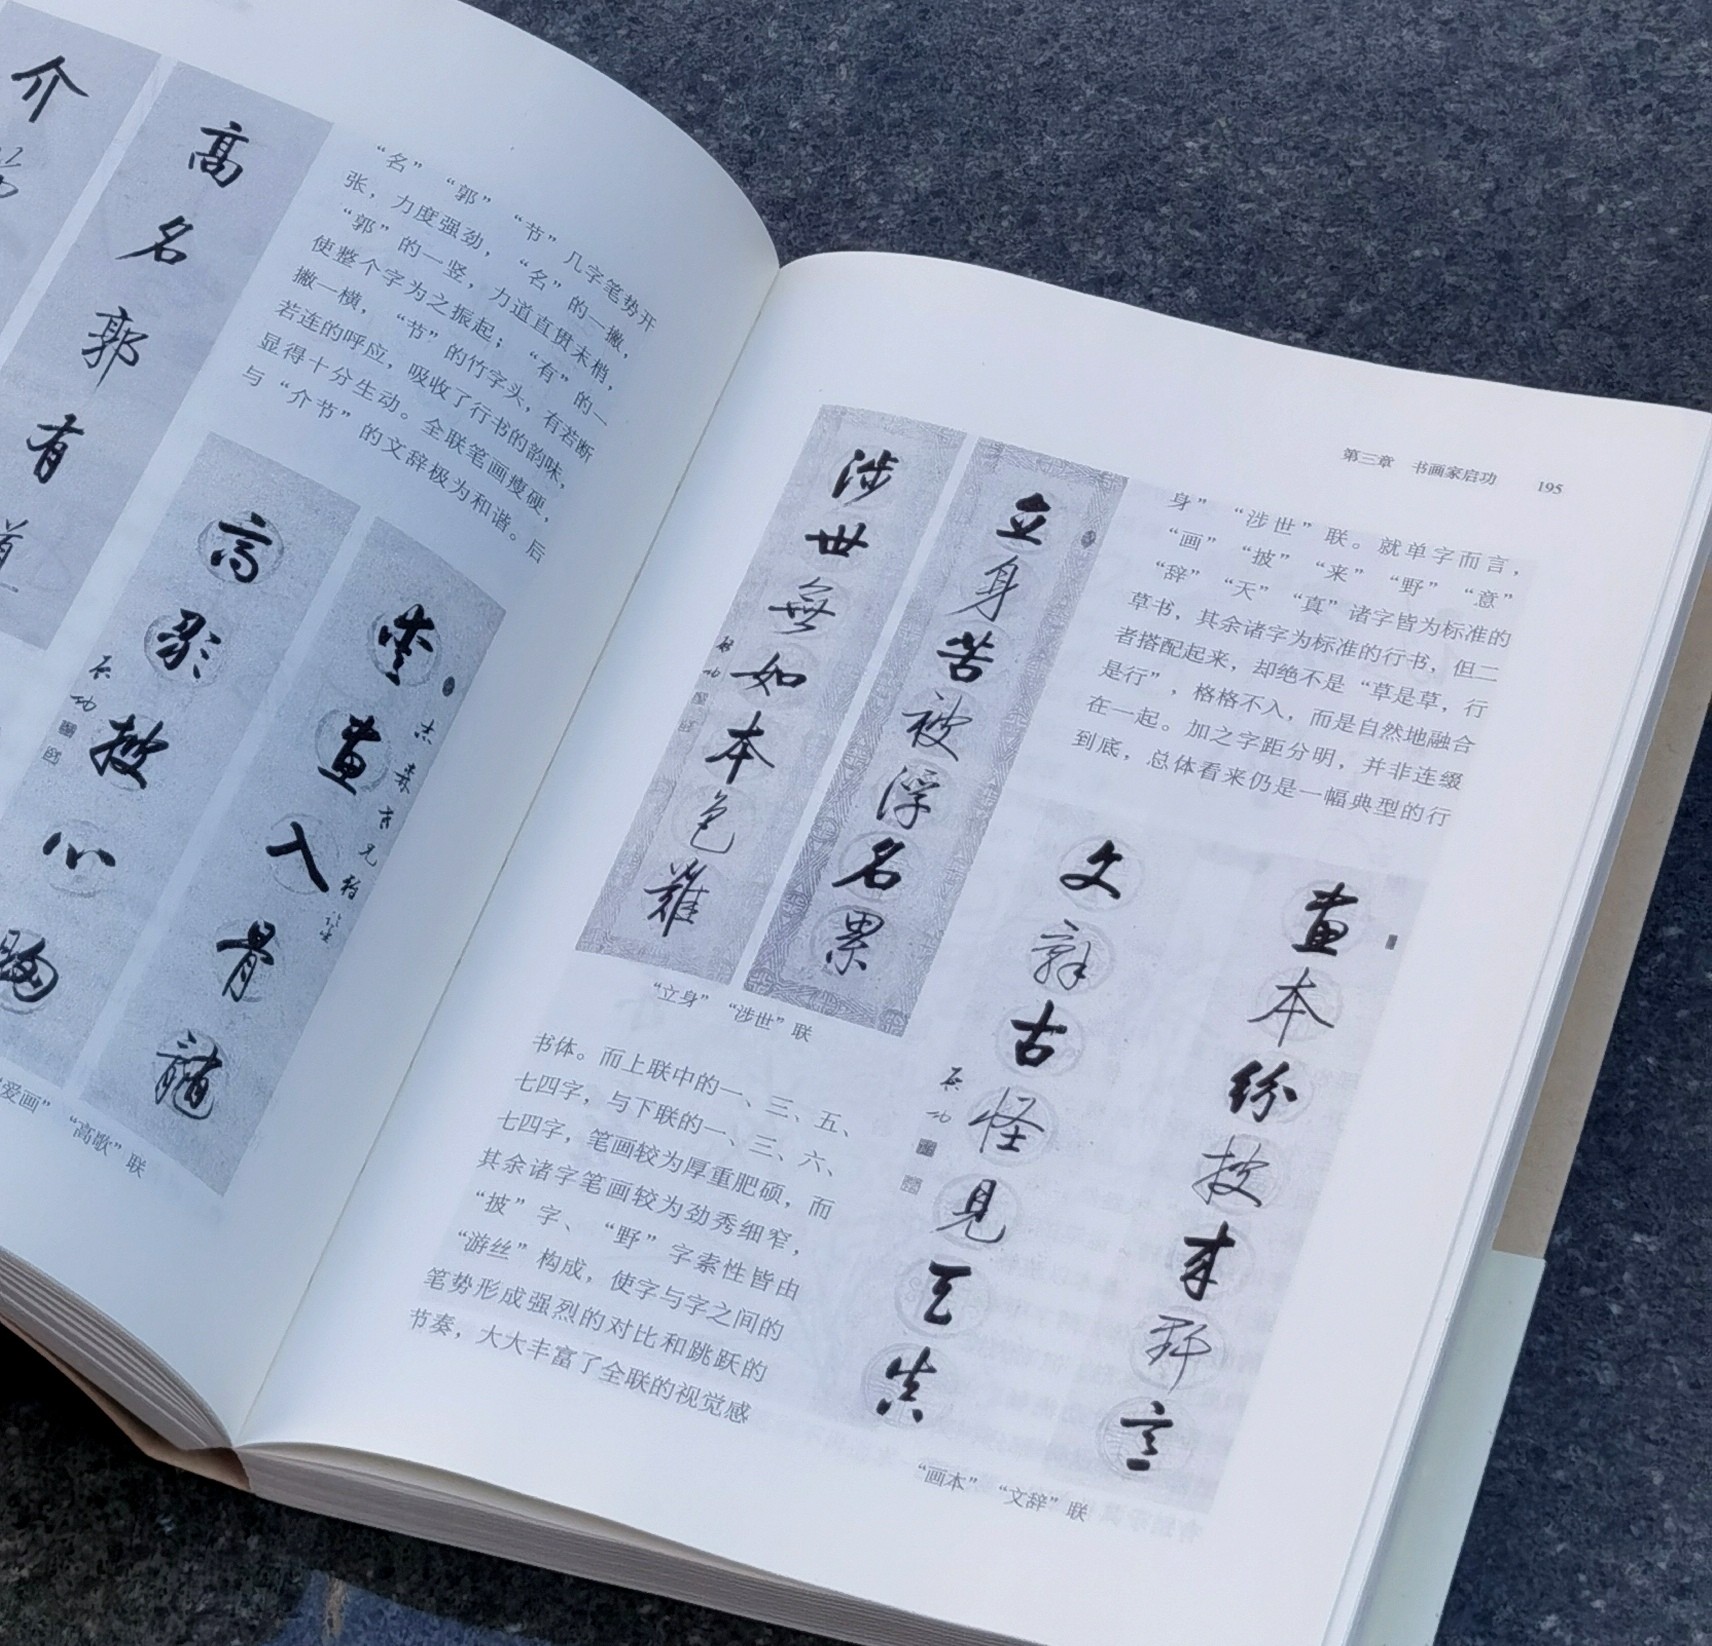 介
高名郭有道
“名”“郭”“节”几字笔势开
张，力度强劲，“名”的一撇，
“郭”的一竖，力道直贯末梢，
使整个字为之振起；“有”的一
撇一横，“节”的竹字头，有若断
若连的呼应，吸收了行书的韵味，
显得十分生动。全联笔画瘦硬，
与“介节”的文辞极为和谐。后
爱画入骨髓
高歌披心胸
启功
爱画”“高歌”联
第三章 书画家启功 195
立身苦被浮名累
涉世无如本色难
启功
“立身”“涉世”联
书体。而上联中的一、三、五、
七四字，与下联的一、三、六、
七四字，笔画较为厚重肥硕，而
其余诸字笔画较为劲秀细窄，
“披”字、“野”字索性皆由
“游丝”构成，使字与字之间的
笔势形成强烈的对比和跳跃的
节奏，大大丰富了全联的视觉感
身”“涉世”联。就单字而言，
“画”“披”“来”“野”“意”
“辞”“天”“真”诸字皆为标准的
草书，其余诸字为标准的行书，但二
者搭配起来，却绝不是“草是草，行
是行”，格格不入，而是自然地融合
在一起。加之字距分明，并非连缀
到底，总体看来仍是一幅典型的行
画本纷披来野意
文辞古怪见天真
启功
“画本”“文辞”联